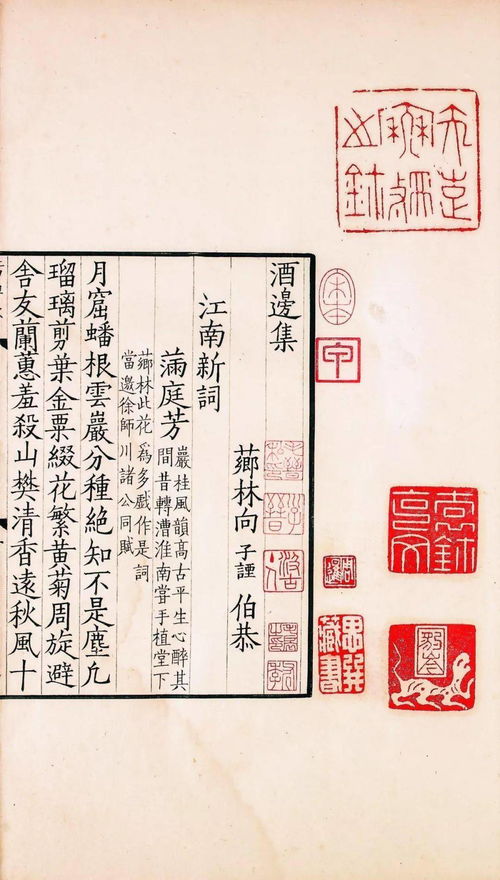 酒邊集
薌林向 子諲 伯恭
江南新詞
滿庭芳
巖桂風韻高古平生心醉其
間昔轉漕淮南嘗手植堂下
薌林此花爲多戲作是詞
當邀徐師川諸公同賦
月窟蟠根雲巖分種絶知不是塵凡
瑠璃剪葉金粟綴花繁黃菊周旋避
舎友蘭蕙羞殺山樊清香遠秋風十
宋本
甲
汲古
周暹
思巽
藏書